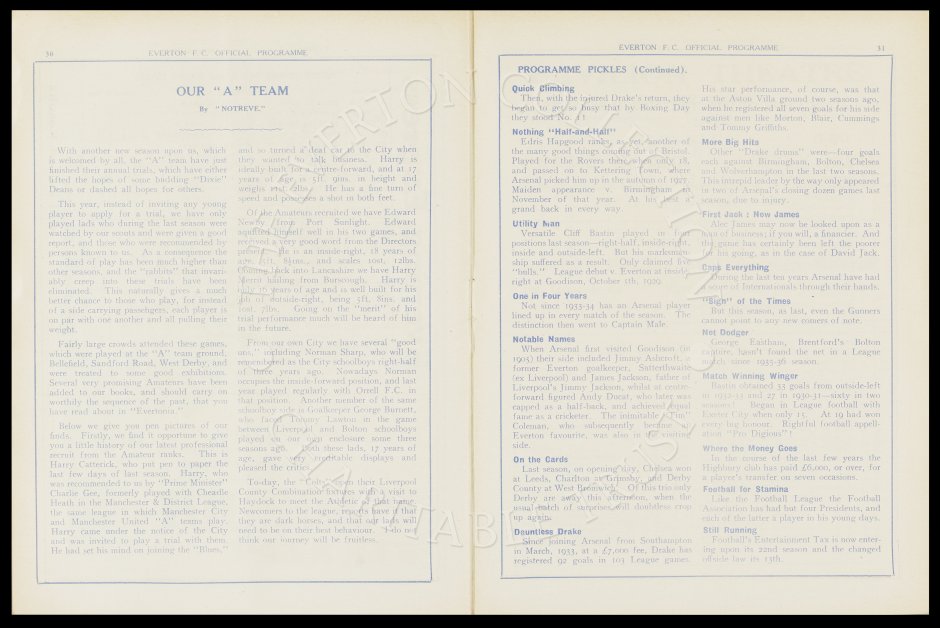 30
EVERTON F.C. OFFICIAL PROGRAMME
OUR "A" TEAM
By "NOTREVE."
With another new season upon us, which
is welcomed by all, the "A" team have just
finished their annual trials, which have either
lifted the hopes of some budding "Dixie"
Deans or dashed all hopes for others.
This year, instead of inviting any young
player to apply for a trial, we have only
played lads who during the last season were
watched by our scouts and were given a good
report, and those who were recommended by
persons known to us. As a consequence the
standard of play has been much higher than
other seasons, and the "rabbits" that invari-
ably creep into these trials have been
eliminated. This naturally gives a much
better chance to those who play, for instead
of a side carrying passengers, each player is
on par with one another and all pulling their
weight.
Fairly large crowds attended these games,
which were played at the "A" team ground,
Bellefield, Sandford Road, West Derby, and
were treated to some good exhibitions.
Several very promising Amateurs have been
added to our books, and should carry on
worthily the sequence of the past, that you
have read about in "Evertonia."
Below we give you pen pictures of our
finds. Firstly, we find it opportune to give
you a little history of our latest professional
recruit from the Amateur ranks. This is
Harry Catterick, who put pen to paper the
last few days of last season. Harry, who
was recommended to us by "Prime Minister"
Charlie Gee, formerly played with Cheadle
Heath in the Manchester & District League,
the same league in which Manchester City
and Manchester United "A" teams play.
Harry came under the notice of the City
and was invited to play a trial with them.
He had set his mind on joining the "Blues,"
and so turned a deaf ear to the City when
they wanted to talk business. Harry is
ideally built for a centre-forward, and at 17
years of age is 5ft. 9ins. in height and
weighs 11st. 2lbs. He has a fine turn of
speed and possesses a shot in both feet.
Of the Amateurs recruited we have Edward
Newby from Port Sunlight. Edward
aquitted himself well in his two games, and
received a very good word from the Directors
present. He is an inside-right, 18 years of
age, 5ft. 8ins., and scales 10st. 12lbs.
Coming back into Lancashire we have Harry
Merrit hailing from Burscough. Harry is
only 16 years of age and is well built for his
job of outside-right, being 5ft. 8ins. and
10st. 7lbs. Going on the "merit" of his
trial performance much will be heard of him
in the future.
From our own City we have several "good
uns," including Norman Sharp, who will be
remembered as the City schoolboys right-half
of three years ago. Nowadays Norman
occupies the inside-forward position, and last
year played regularly with Orrell F.C. in
that position. Another member of the same
schoolboy side is Goalkeeper George Burnett,
who faced Tommy Lawton in the game
between Liverpool and Bolton schoolboys
played on our own enclosure some three
seasons ago. Both these lads, 17 years of
age, gave very creditable displays and
pleased the critics.
To-day, the "Colts" open their Liverpool
County Combination fixtures with a visit to
Haydock to meet the Athletic of that name.
Newcomers to the league, rumours have it that
they are dark horses, and that our lads will
need to be on their best behaviour. I do not
think our journey will be fruitless.
EVERTON F.C. OFFICIAL PROGRAMME
31
PROGRAMME PICKLES (Continued).
Quick Climbing
Then, with the injured Drake's return, they
began to get so busy that by Boxing Day
they stood No. 1!
Nothing "Half-and-Half"
Edris Hapgood ranks, as yet, another of
the many good things coming out of Bristol.
Played for the Rovers there when only 18,
and passed on to Kettering Town, where
Arsenal picked him up in the autumn of 1927.
Maiden appearance v. Birmingham in
November of that year. At his best a
grand back in every way.
Utility Man
Versatile Cliff Bastin played in four
positions last season—right-half, inside-right,
inside and outside-left. But his marksman-
ship suffered as a result. Only claimed five
"bulls." League debut v. Everton at inside-
right at Goodison, October 5th, 1929.
One in Four Years
Not since 1933-34 has an Arsenal player
lined up in every match of the season. The
distinction then went to Captain Male.
Notable Names
When Arsenal first visited Goodison (in
1905) their side included Jimmy Ashcroft, a
former Everton goalkeeper, Satterthwaite
(ex Liverpool) and James Jackson, father of
Liverpool's Jimmy Jackson, whilst at centre-
forward figured Andy Ducat, who later was
capped as a half-back, and achieved equal
fame as a cricketer. The inimitable "Tim"
Coleman, who subsequently became an
Everton favourite, was also in the visiting
side.
On the Cards
Last season, on opening day, Chelsea won
at Leeds, Charlton at Grimsby, and Derby
County at West Bromwich. Of this trio only
Derby are away this afternoon, when the
usual batch of surprises will doubtless crop
up again.
Dauntless Drake
Since joining Arsenal from Southampton
in March, 1933, at a £7,000 fee, Drake has
registered 92 goals in 103 League games.
His star performance, of course, was that
at the Aston Villa ground two seasons ago,
when he registered all seven goals for his side
against men like Morton, Blair, Cummings
and Tommy Griffiths.
More Big Hits
Other "Drake drums" were—four goals
each against Birmingham, Bolton, Chelsea
and Wolverhampton in the last two seasons.
This intrepid leader by the way only appeared
in two of Arsenal's closing dozen games last
season, due to injury.
First Jack : Now James
Alec James may now be looked upon as a
man of business; if you will, a financier. And
the game has certainly been left the poorer
for his going, as in the case of David Jack.
Caps Everything
During the last ten years Arsenal have had
a score of Internationals through their hands.
"Sign" of the Times
But this season, as last, even the Gunners
cannot point to any new comers of note.
Net Dodger
George Eastham, Brentford's Bolton
capture, hasn't found the net in a League
match since 1935-36 season.
Match Winning Winger
Bastin obtained 33 goals from outside-left
in 1932-33 and 27 in 1930-31—sixty in two
seasons! Began in League football with
Exeter City when only 15. At 19 had won
every big honour. Rightful football appell-
ation "Pro Digious"!
Where the Money Goes
In the course of the last few years the
Highbury club has paid £6,000, or over, for
a player's transfer on seven occasions.
Football for Stamina
Like the Football League the Football
Association has had but four Presidents, and
each of the latter a player in his young days.
Still Running
Football's Entertainment Tax is now enter-
ing upon its 22nd season and the changed
offside law its 13th.